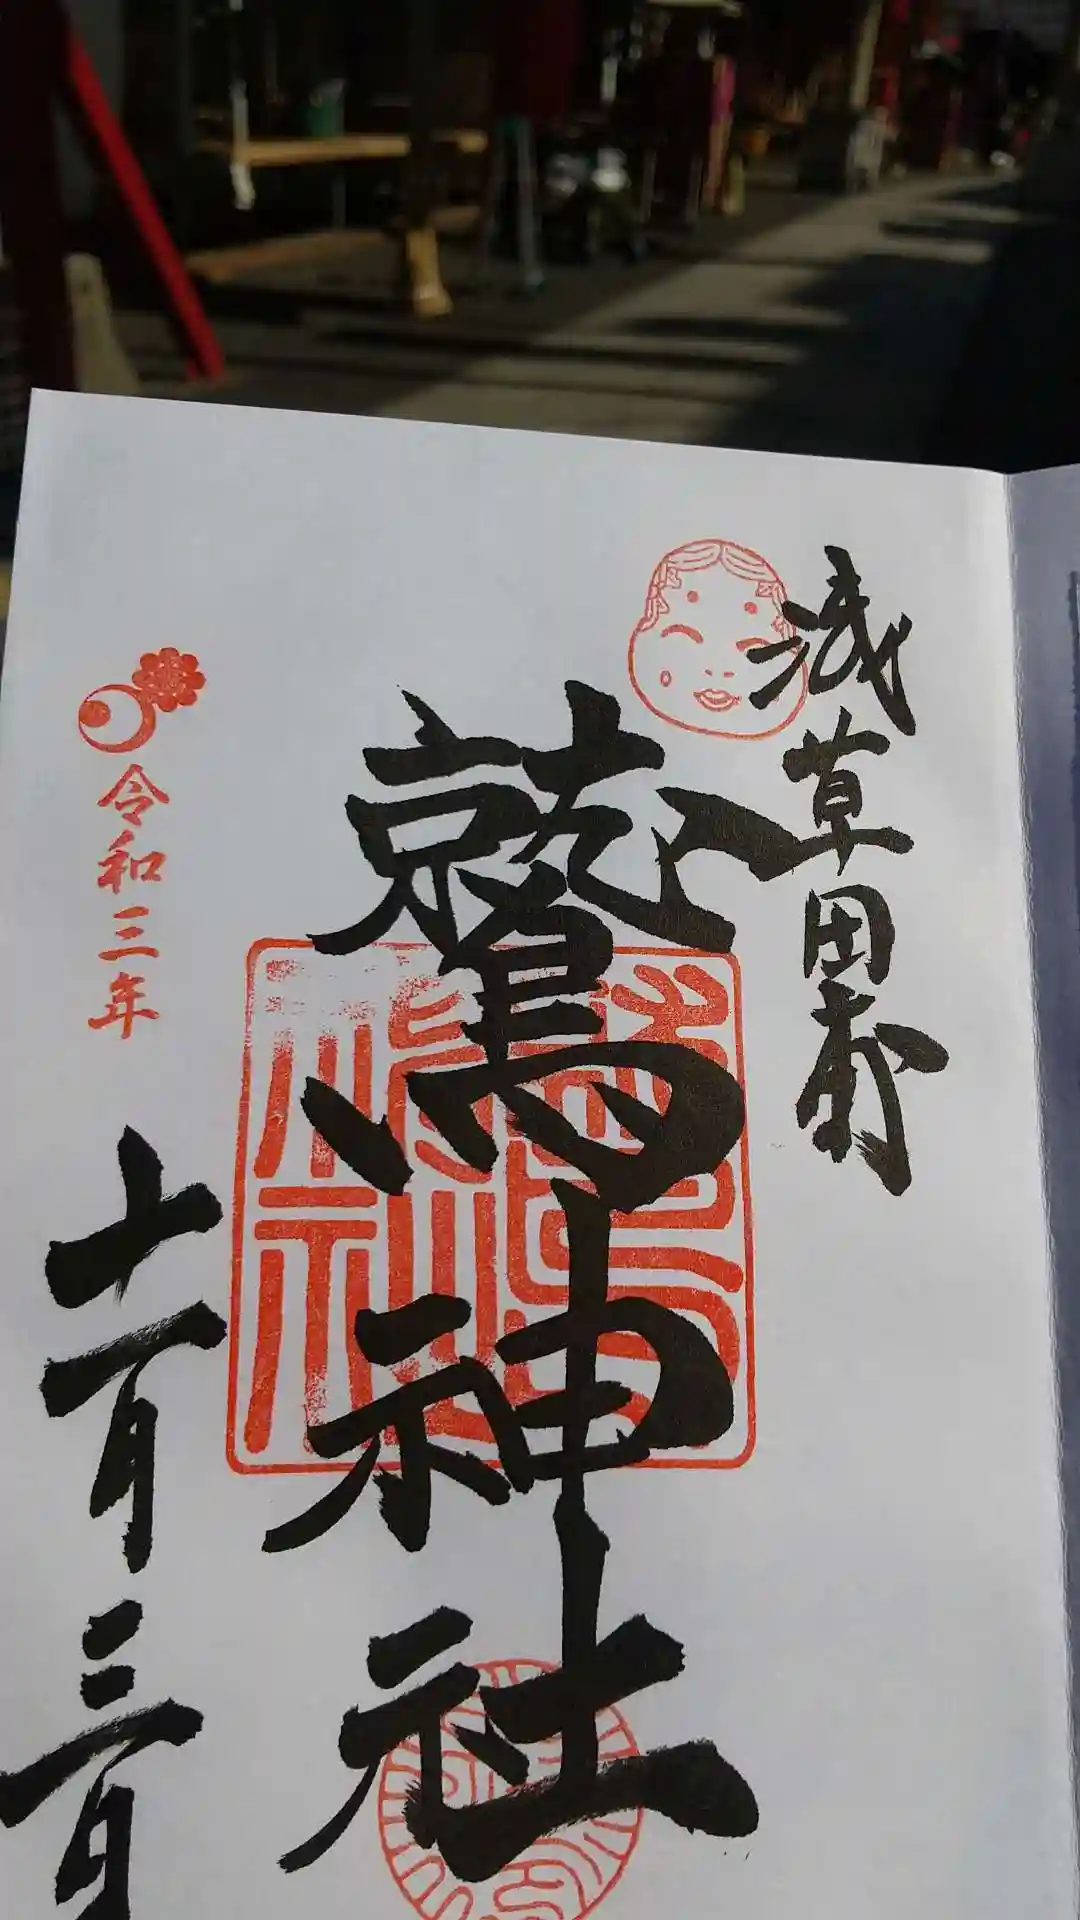 浅草田甫
鷲神社
令和三年
十一月三日